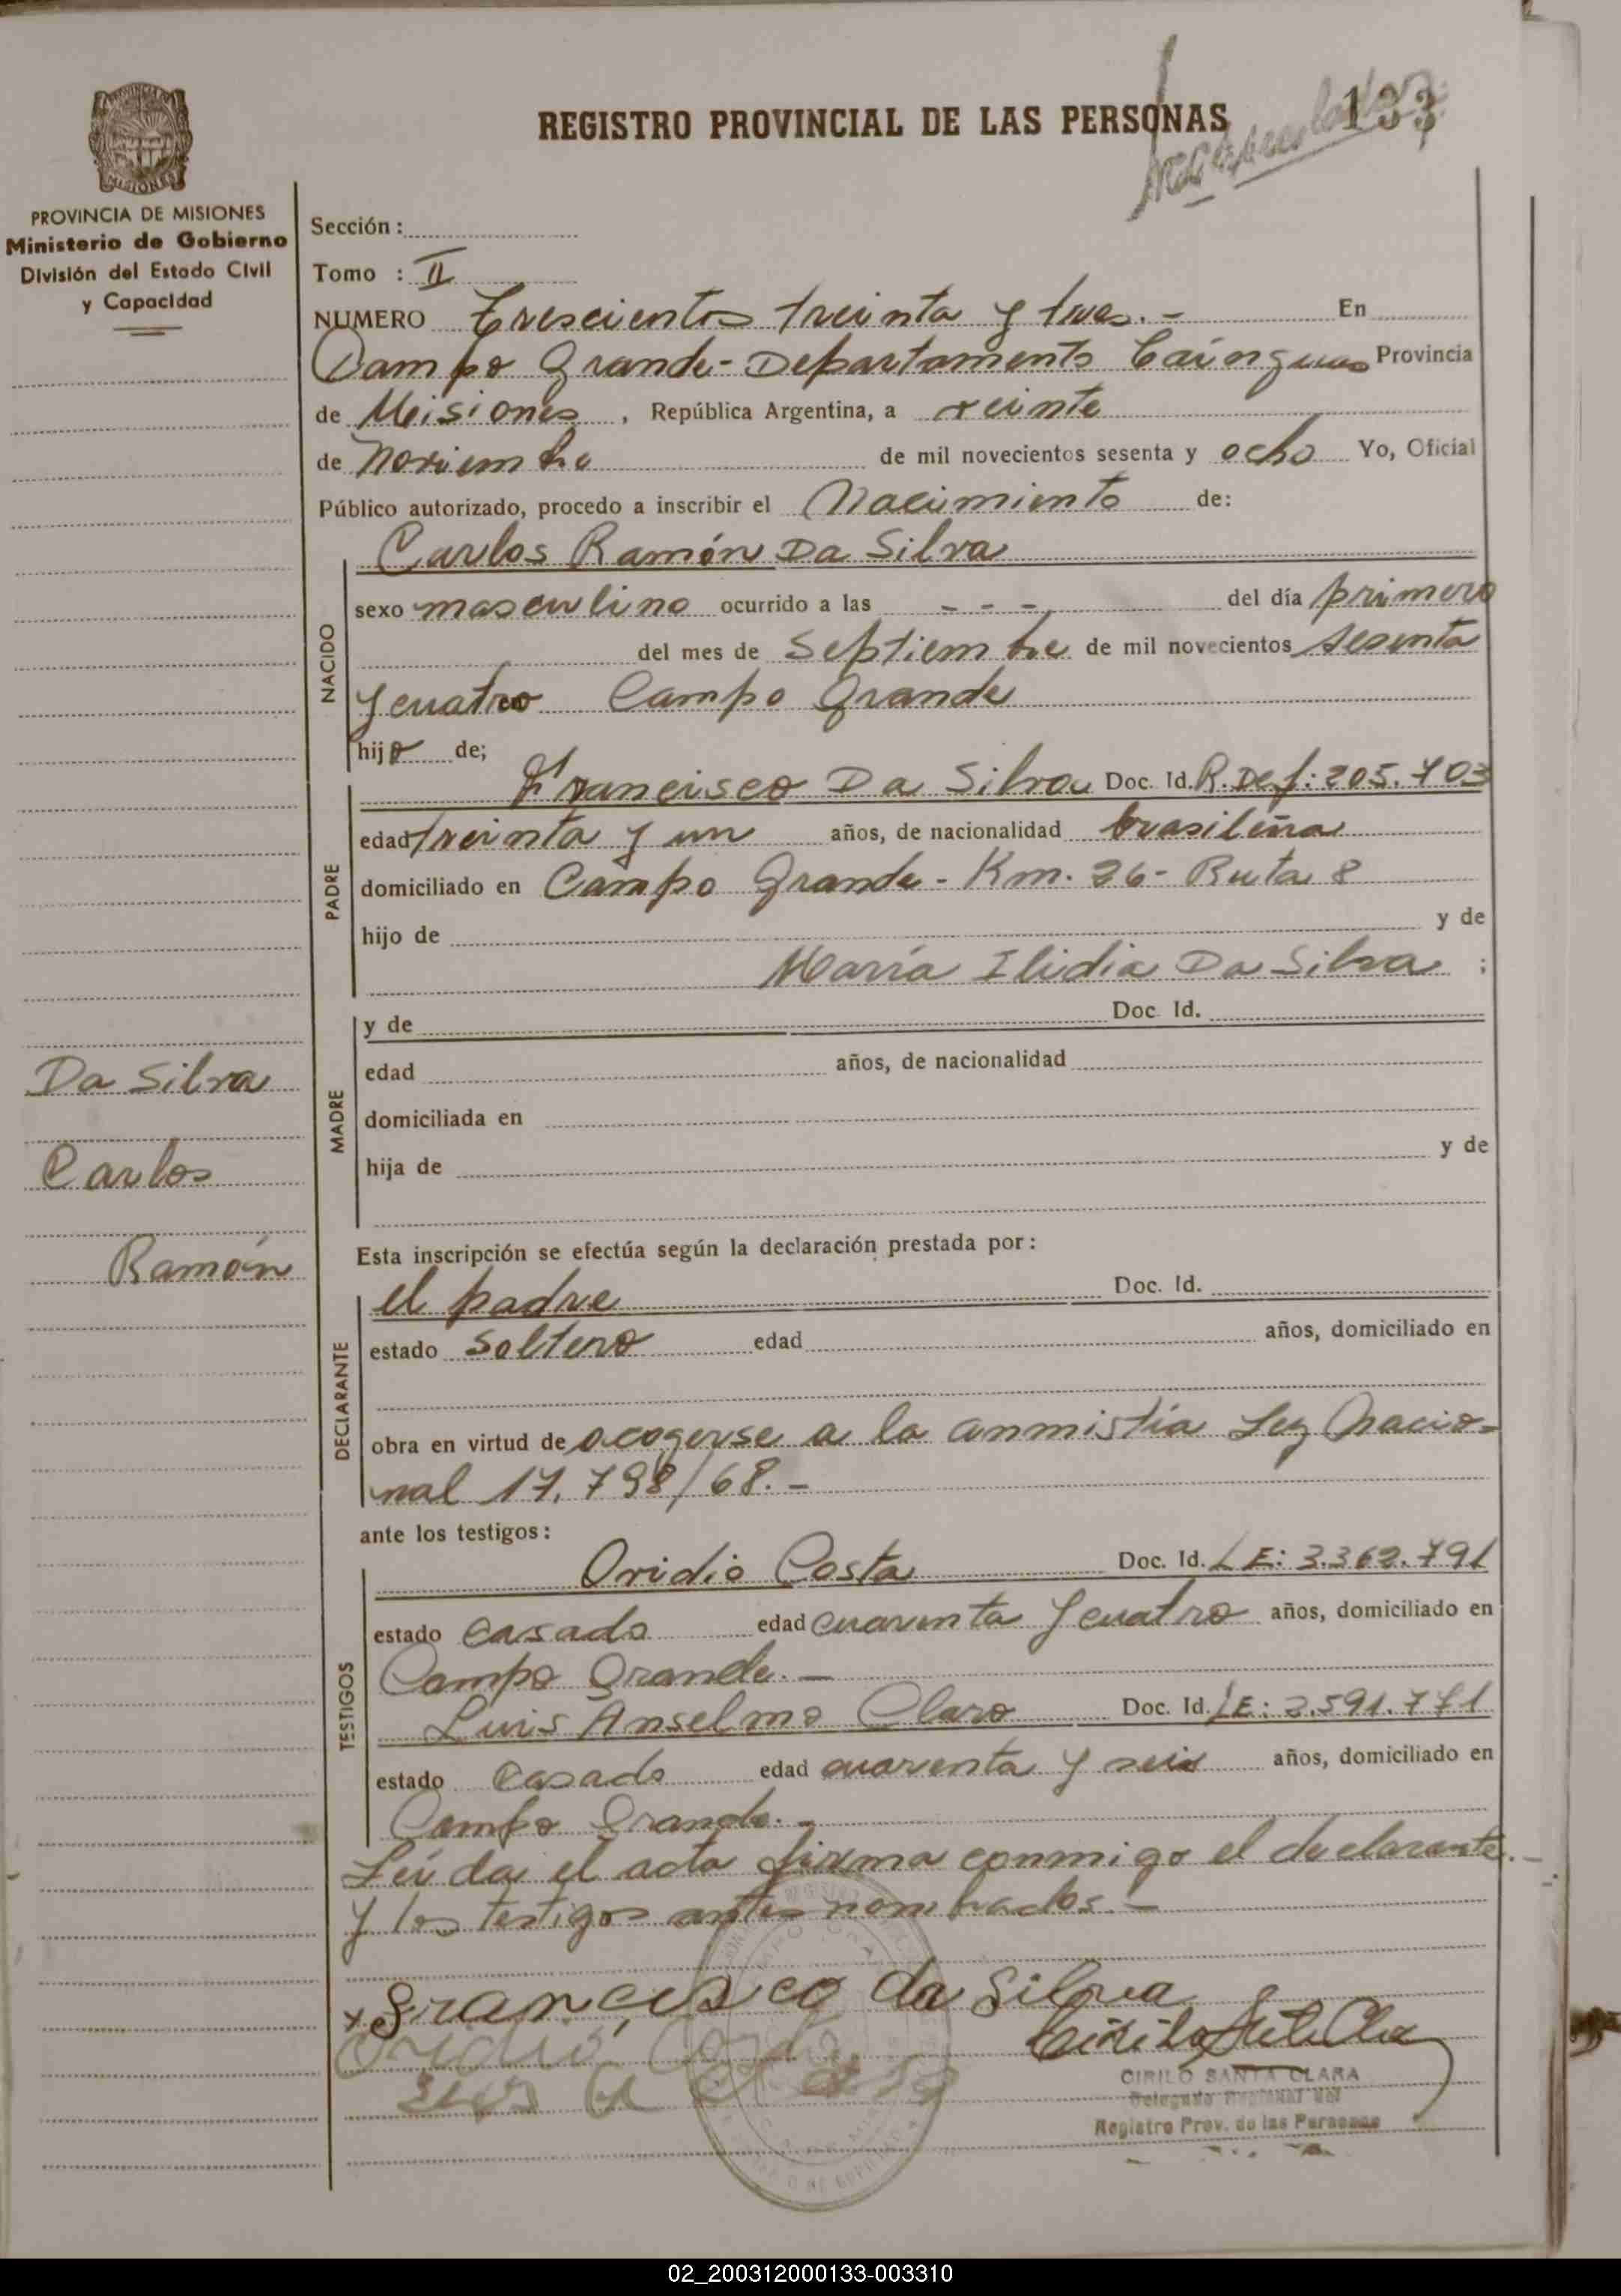 133
REGISTRO PROVINCIAL DE LAS PERSONAS
MISIONES
PROVINCIA DE MISIONES
Ministerio de Gobierno
División del Estado Civil
y Capacidad
Sección :
Tomo : II
NUMERO Trescientos treinta y tres.- En
Campo Grande-Departamento Cainguas Provincia
de Misiones, República Argentina, a veinte
de Noviembre de mil novecientos sesenta y ocho Yo, Oficial
Público autorizado, procedo a inscribir el Nacimiento de:
Carlos Ramón Da Silva
NACIDO
sexo masculino ocurrido a las - - - del día primero
del mes de Septiembre de mil novecientos sesenta
y cuatro Campo Grande
hijo de;
PADRE
Francisco Da Silva Doc. Id. R.Def: 205.703
edad treinta y un años, de nacionalidad brasileña
domiciliado en Campo Grande - Km. 26 - Ruta 8
hijo de y de
María Ilidia Da Silva ;
MADRE
y de Doc. Id.
edad años, de nacionalidad
domiciliada en
hija de y de
Da Silva
Carlos
Ramón
Esta inscripción se efectúa según la declaración prestada por:
DECLARANTE
el padre Doc. Id.
estado Soltero edad años, domiciliado en
obra en virtud de acogerse a la anmistía Ley Nacio-
nal 17.798/68.-
ante los testigos:
TESTIGOS
Ovidio Costa Doc. Id. LE: 3.362.791
estado Casado edad cuarenta y cuatro años, domiciliado en
Campo Grande.-
Luis Anselmo Claro Doc. Id. LE: 2.591.771
estado Casado edad cuarenta y seis años, domiciliado en
Campo Grande.-
Leída el acta firma conmigo el declarante.-
y los testigos antes nombrados.-
x Francisco da Silva
Ovidio Costa
CIRILO SANTA CLARA
Delegado
Registro Prov. de las Personas
02_200312000133-003310